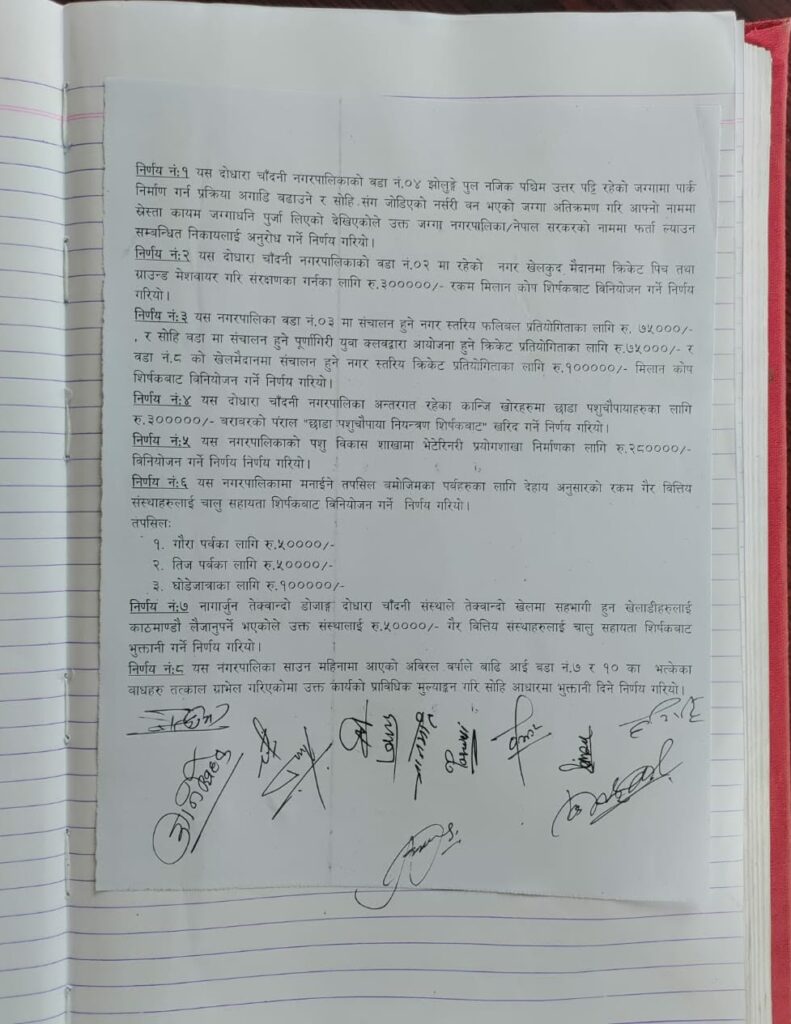 निर्णय नं:१ यस दोधारा चाँदनी नगरपालिकाको वडा नं.०४ झोलुङ्गे पुल नजिक पश्चिम उत्तर पट्टि रहेको जग्गामा पार्क
निर्माण गर्न प्रक्रिया अगाडि बढाउने र सोहि संग जोडिएको नर्सरी वन भएको जग्गा अतिक्रमण गरि आफ्नो नाममा
स्रेस्ता कायम जग्गाधनि पुर्जा लिएको देखिएकोले उक्त जग्गा नगरपालिका/नेपाल सरकरको नाममा फर्ता ल्याउन
सम्बन्धित निकायलाई अनुरोध गर्ने निर्णय गरियो।
निर्णय नं:२ यस दोधारा चाँदनी नगरपालिकाको वडा नं.०२ मा रहेको नगर खेलकुद मैदानमा क्रिकेट पिच तथा
ग्राउन्ड मेशवायर गरि संरक्षणका गर्नका लागि रु.३०००००/- रकम मिलान कोष शिर्षकबाट विनियोजन गर्ने निर्णय
गरियो।
निर्णय नं:३ यस नगरपालिका वडा नं.०३ मा संचालन हुने नगर स्तरिय फलिबल प्रतियोगिताका लागि रु. ७५०००/-
, र सोहि वडा मा संचालन हुने पूर्णागिरी युवा क्लवद्वारा आयोजना हुने क्रिकेट प्रतियोगिताका लागि रु.७५०००/- र
वडा नं.८ को खेलमैदानमा संचालन हुने नगर स्तरिय क्रिकेट प्रतियोगिताका लागि रु.१०००००/- मिलान कोष
शिर्षकबाट विनियोजन गर्ने निर्णय गरियो।
निर्णय नं:४ यस दोधारा चाँदनी नगरपालिका अन्तरगत रहेका कान्जि खोरहरुमा छाडा पशुचौपायाहरुका लागि
रु.३०००००/- बराबरको पंराल "छाडा पशुचौपाया नियन्त्रण शिर्षकबाट" खरिद गर्ने निर्णय गरियो।
निर्णय नं:५ यस नगरपालिकाको पशु विकास शाखामा भेटेरिनरी प्रयोगशाखा निर्माणका लागि रु.२८००००/-
विनियोजन गर्ने निर्णय निर्णय गरियो।
निर्णय नं:६ यस नगरपालिकामा मनाईने तपसिल बमोजिमका पर्वहरुका लागि देहाय अनुसारको रकम गैर वित्तिय
संस्थाहरुलाई चालु सहायता शिर्षकबाट विनियोजन गर्ने निर्णय गरियो।
तपसिल:
१. गौरा पर्वका लागि रु.५००००/-
२. तिज पर्वका लागि रु.५००००/-
३. घोडेजात्राका लागि रु.१०००००/-
निर्णय नं:७ नागार्जुन तेक्वान्दो डोजाङ्ग दोधारा चाँदनी संस्थाले तेक्वान्दो खेलमा सहभागी हुन खेलाडीहरुलाई
काठमाण्डौ लैजानुपर्ने भएकोले उक्त संस्थालाई रु.५००००/- गैर वित्तिय संस्थाहरुलाई चालु सहायता शिर्षकबाट
भुक्तानी गर्ने निर्णय गरियो।
निर्णय नं:८ यस नगरपालिका साउन महिनामा आएको अविरल वर्षाले बाढि आई वडा नं.७ र १० का भत्केका
बाधहरु तत्काल ग्राभेल गरिएकोमा उक्त कार्यको प्राविधिक मुल्याङ्कन गरि सोहि आधारमा भुक्तानी दिने निर्णय गरियो।